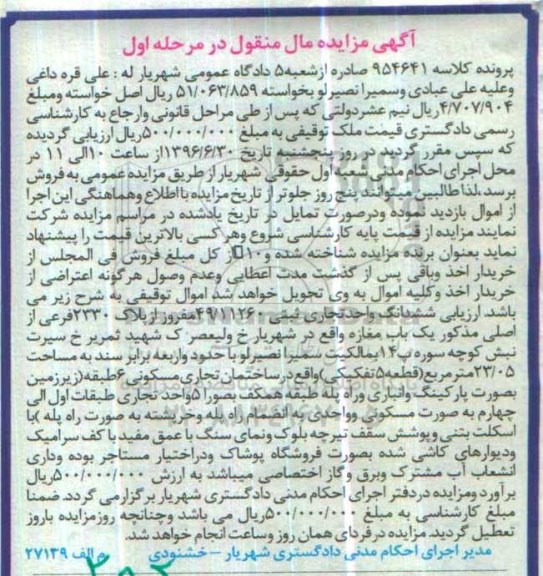 آگهی مزایده مال منقول در مرحله اول
پرونده کلاسه ۹۵۴۶۴۱ صادره از شعبه۵ دادگاه عمومی شهریار له : علی قره داغی
وعلیه علی عبادی وسمیرا نصیرلو بخواسته ۵۱/۰۶۳/۸۵۹ ریال اصل خواسته ومبلغ
۴/۷۰۷/۹۰۴ریال نیم عشردولتی که پس از طی مراحل قانونی وارجاع به کارشناسی
رسمی دادگستری قیمت ملک توقیفی به مبلغ ۵۰۰/۰۰۰/۰۰۰ریال ارزیابی گردیده
که سپس مقرر گردید در روز پنجشنبه تاریخ ۱۳۹۶/۶/۳۰از ساعت ۱۰الی ۱۱ در
محل اجرای احکام مدنی شعبه اول حقوقی شهریار از طریق مزایده عمومی به فروش
برسد.لذا طالبین می توانند پنج روز جلوتر از تاریخ مزایده با اطلاع وهماهنگی این اجرا
از اموال بازدید نموده ودرصورت تمایل در تاریخ یادشده در مراسم مزایده شرکت
نمایند مزایده از قیمت پایه کارشناسی شروع وهر کسی بالاترین قیمت را پیشنهاد
نماید بعنوان برنده مزایده شناخته شده و۱۰٪از کل مبلغ فروش فی المجلس از
خریدار اخذ وباقی پس از گذشت مدت اعطایی وعدم وصول هرگونه اعتراضی از
خریدار اخذ وکلیه اموال به وی تحویل خواهد شد اموال توقیفی به شرح زیر می
باشد. ارزیابی ششدانگ واحدتجاری ثبتی ۴۹۱۱۱۲۶۰مفروز از پلاک ۲۲۳۰فرعی از
اصلی مذکور یک باب مغازه واقع در شهریار خ ولیعصر ک شهید ثمریر خ سیرت
نبش کوچه سوره پ۱۴بمالکیت سمیرا نصیرلو با حدود واربعه برابر سند به مساحت
۲۳/۰۵مترمربع(قطعه۵تفکیکی)واقع درساختمان تجاری مسکونی ۶طبقه(زیرزمین
بصورت پارکینگ وانباری وراه پله طبقه همکف بصورا ۵واحد تجاری طبقات اول الی
چهارم به صورت مسکونی وواحدی به انضمام راه پله وخرپشته به صورت راه پله )با
اسکلت بتنی وپوشش سقف تیرچه بلوک ونمای سنگ با عمق مفید با کف سرامیک
ودیوارهای کاشی شده بصورت فروشگاه پوشاک ودراختیار مستاجر بوده وداری
انشعاب آب مشترک وبرق وگاز اختصاصی میباشد به ارزش ۵۰۰/۰۰۰/۰۰۰ریال
برآورد ومزایده دردفتر اجرای احکام مدنی دادگستری شهریار برگزارمی گردد. ضمنا
مبلغ کارشناسی به مبلغ ۵۰۰/۰۰۰/۰۰۰ریال می باشد وچنانچه روزمزایده باروز
تعطیل گردید مزایده در فردای همان روز وساعت انجام خواهد شد.
مدیر اجرای احکام مدنی دادگستری شهریار – خشنودی م الف ۲۷۱۳۹